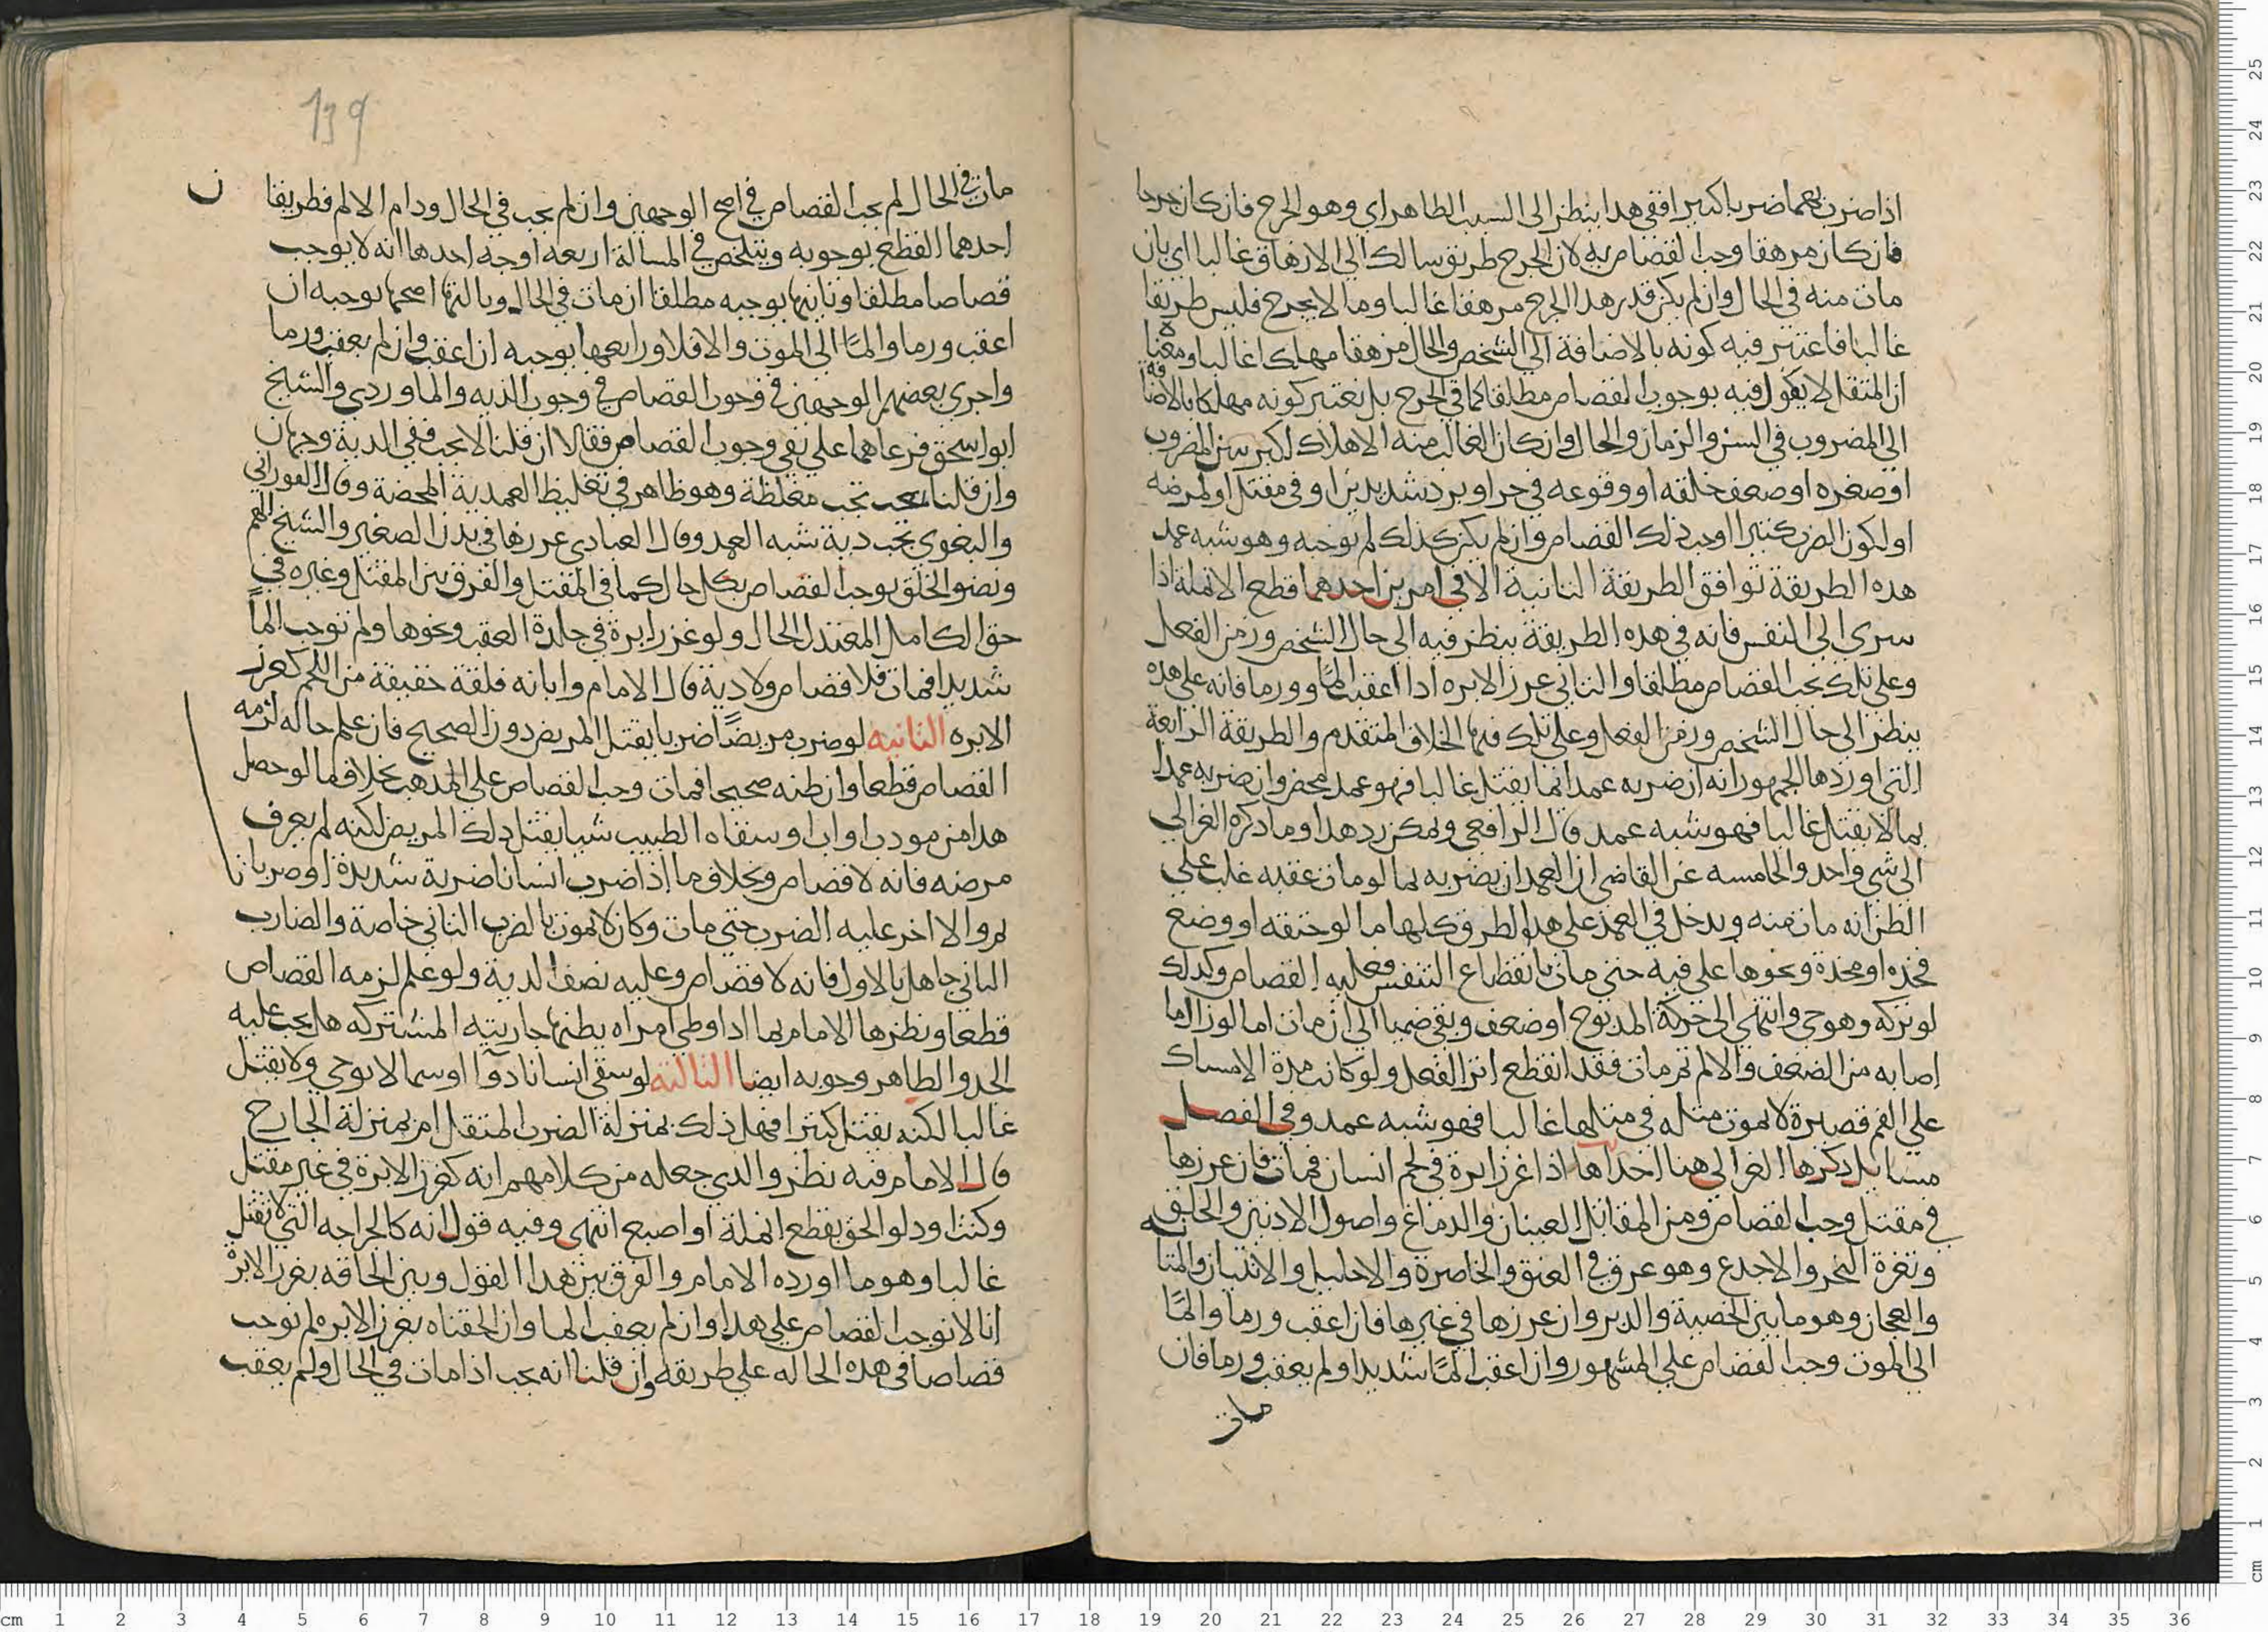 اذا ضرب بعصا ضربا كبيرا ففي هذا ينظر الى السبب الظاهر اي وهو الجرح فان كان جرحا
فان كان مرهقا وجب القصاص به لان الجرح طريق سالك الى الازهاق غالبا اي بان
مات منه في الحال وان لم يكن قدر هذا الجرح مرهقا غالبا وما لا يجرح فليس طريقا
غالبا فاعتبر فيه كونه بالاضافة الى الشخص والحال مرهقا مهلكا غالبا ومعناه
ان المثقل لا يقول فيه بوجوب القصاص مطلقا كما في الجرح بل نعتبر كونه مهلكا بالاضافة
الى المضروب في السن والزمان والحال وان كان الغالب منه الاهلاك لكبر سن المضروب
او صغره او ضعف خلقه او وقوعه في حر او برد شديدين او في مقتل او لمرضه
او لكون الضرب كثيرا اوجب ذلك القصاص وان لم يكن كذلك لم نوجبه وهو شبه عمد
هذه الطريقة توافق الطريقة الثانية الا في امرين احدهما قطع الانملة اذا
سرى الى النفس فانه في هذه الطريقة ينظر فيه الى حال الشخص وزمن الفعل
وعلى تلك يجب القصاص مطلقا والثاني غرز الابره اذا اعقب الما وورما فانه على هذه
ينظر الى حال الشخص وزمن الفعل وعلى تلك فيها الخلاف المتقدم والطريقة الرابعة
التي اوردها الجمهور انه ان ضربه عمدا بما يقتل غالبا فهو عمد محض وان ضربه عمدا
بما لا يقتل غالبا فهو شبه عمد قال الرافعي ويمكن رد هذا وما ذكره الغزالي
الى شي واحد والخامسه عن القاضي ان العمد ان يضربه بما لو مات عقبه غلب على
الظن انه مات منه ويدخل في العمد على هذه الطرق كلها ما لو خنقه او وضع
فخذه او مخدة ونحوها على فيه حتى مات بانقطاع النفس فعليه القصاص وكذلك
لو تركه وهو حي وانتهى الى حركة المذبوح او ضعف وبقي ضمنا الى ان مات اما لو زال ما
اصابه من الضعف والالم ثم مات فقد انقطع اثر الفعل ولو كانت مدة الامساك
على الفم قصيرة لا يموت مثله في مثلها غالبا فهو شبه عمد وفي الفصل
مسايل ذكرها الغزالي هنا احداها اذا غرز ابرة في لحم انسان فمات فان غرزها
في مقتل وجب القصاص ومن المقاتل العينان والدماغ واصول الاذنين والحلق
وثغرة النحر والاخدع وهو عرق في العنق والخاصرة والاحليل والانثيان والمثانه
والعجان وهو ما بين الخصية والدبر وان غرزها في غيرها فان اعقب ورما والما
الى الموت وجب القصاص على المشهور وان اعقب الما شديدا ولم يعقب ورما فان
مات
139
مات في الحال لم يجب القصاص في اصح الوجهين وان لم يجب في الحال ودام الالم فطريقان
احدهما القطع بوجوبه ويتلخص في المسالة اربعه اوجه احدها انه لا يوجب
قصاصا مطلقا وثانيها يوجبه مطلقا ان مات في الحال وثالثها اصحها يوجبه ان
اعقب ورما والما الى الموت والا فلا ورابعها يوجبه ان اعقب وان لم يعقب ورما
واجرى بعضهم الوجهين في وجوب القصاص في وجوب الديه والماوردي والشيخ
ابو اسحق فرعاهما على نفي وجوب القصاص فقالا ان قلنا لا يجب ففي الدية وجهان
وان قلنا تجب مغلظة وهو ظاهر في تغليظ العمدية المحضة وقال الفوراني
والبغوي تجب دية شبه العمد وقال العبادي غررها في بدن الصغير والشيخ الهم
ونضو الخلق يوجب القصاص بكل حال كما في المقتل والفرق بين المقتل وغيره في
حق الكامل المعتدل الحال ولو غرز ابرة في جلدة العقب ونحوها ولم توجب الما
شديدا فمات فلا قصاص ولا دية قال الامام وابانه فلقة خفيفة من اللحم كغرز
الابره الثانيه لو ضرب مريضا ضربا يقتل المريض دون الصحيح فان علم حاله لزمه
القصاص قطعا وان ظنه صحيحا فمات وجب القصاص على المذهب بخلاف ما لو حصل
هذا من مودب او اب او سقاه الطبيب شيا يقتل ذلك المريض لكنه لم يعرف
مرضه فانه لا قصاص وبخلاف ما اذا ضرب انسانا ضربة شديدة او ضربات
ثم والا اخر عليه الضرب حتى مات وكان لا يموت بالضرب الثاني خاصة والضارب
الثاني جاهل بالاول فانه لا قصاص وعليه نصف الدية ولو علم لزمه القصاص
قطعا ونظرها الامام بما اذا وطئ امراه يظنها جاريته المشتركه هل يجب عليه
الحد والظاهر وجوبه ايضا الثالثه لو سقى انسانا دوآ او سما لا يوحي ولا يقتل
غالبا لكنه يقتل كثيرا فهل ذلك بمنزلة الضرب المثقل ام بمنزلة الجارح
قال الامام فيه نظر والذي جعله من كلامهم انه كغرز الابرة في غير مقتل
وكنت اود لو الحق بقطع انملة او اصبع انتهى وفيه قول انه كالجراحه التي لا تقتل
غالبا وهو ما اورده الامام والفرق بين هذا القول وبين الحاقه بغرز الابرة
انا لا نوجب القصاص على هذا وان لم يعقب الما وان الحقناه بغرز الابره لم نوجب
قصاصا في هذه الحاله على طريقه وان قلنا انه يجب اذا مات في الحال ولم يعقب